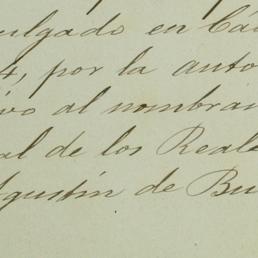 ulgado en Cá
4, por la auto
ivo al nombra
al de los Reale
Agustín de Bu